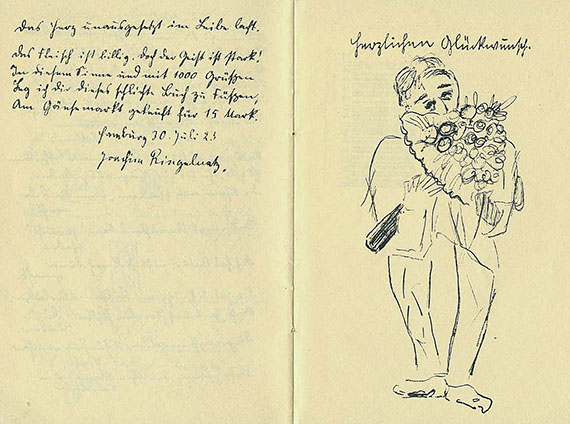 Das Herz unausgesetzt im Leibe lacht.
Das Fleisch ist billig. Doch der Geist ist stark!
In diesem Sinne und mit 1000 Grüßen
Leg ich dir dieses schlichte Buch zu Füßen,
Am Gänsemarkt gekauft für 15 Mark.
Hamburg 30. Juli 23
Joachim Ringelnatz.
Herzlichen Glückwunsch.